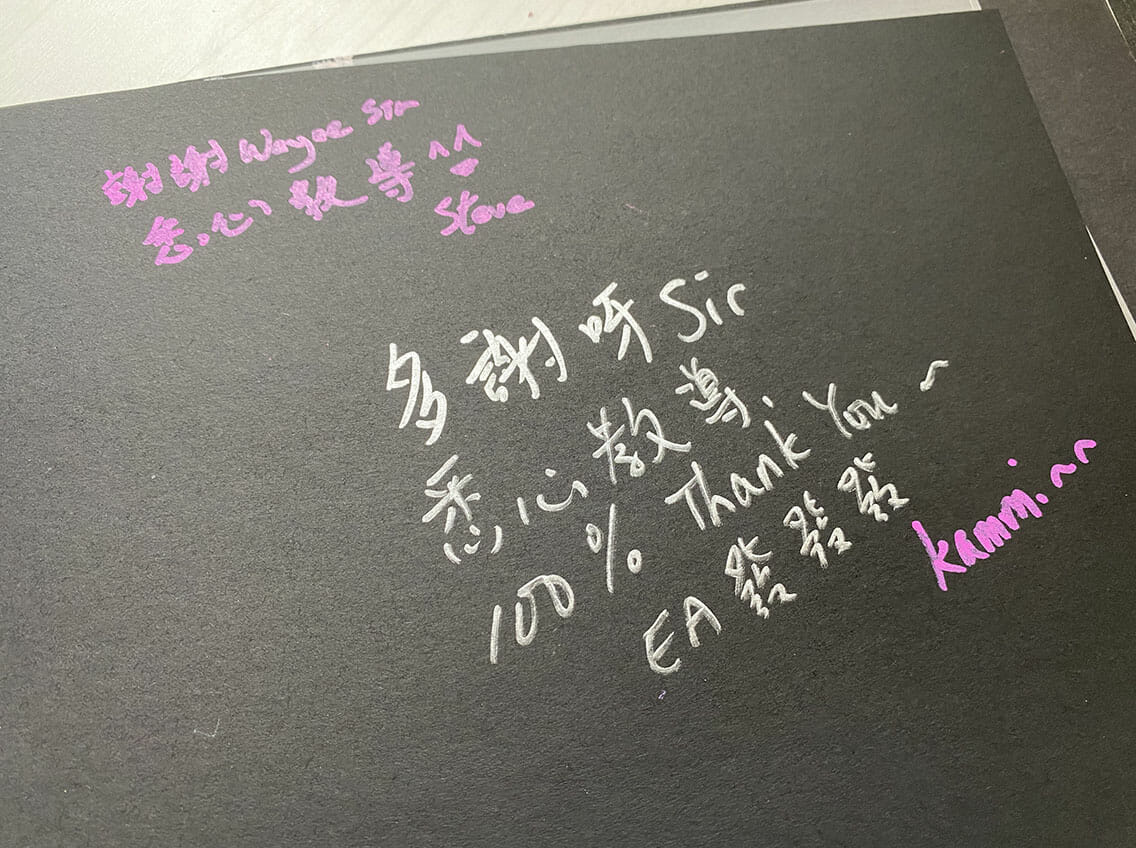 謝謝 Wayne Sir
悉心教導 ^^
Steve
多謝呀 Sir
悉心教導.
100% Thank You ~
EA 發發發
kammi ~~